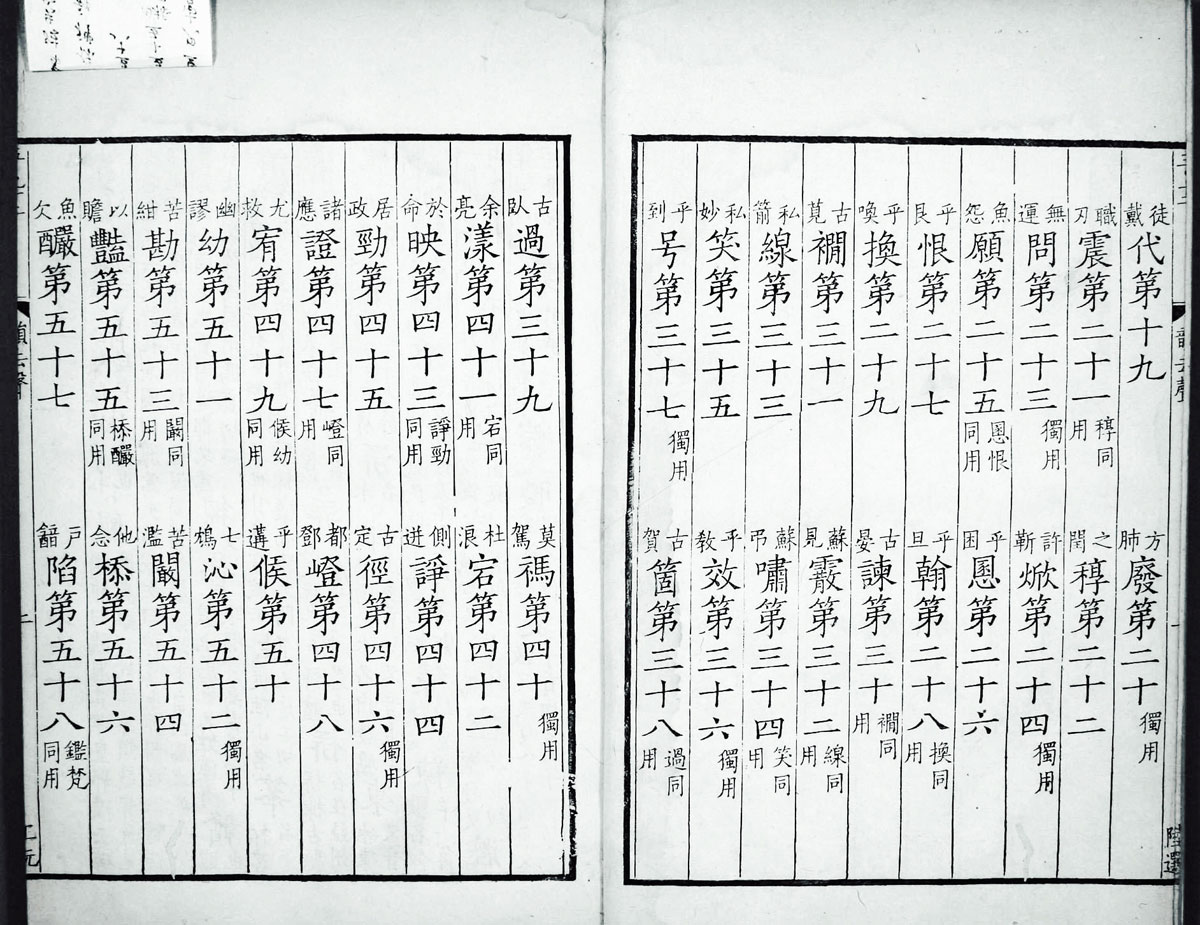 徒戴代第十九 方肺廢第二十獨用
職刃震第二十一稕同用 之閏稕第二十二
無運問第二十三獨用 許靳焮第二十四獨用
魚怨願第二十五慁恨同用 乎困慁第二十六
乎艮恨第二十七 乎旦翰第二十八換同用
乎喚換第二十九 古晏諫第三十襇同用
古莧襇第三十一 蘇見霰第三十二線同用
私箭線第三十三 蘇弔嘯第三十四笑同用
私妙笑第三十五 乎教效第三十六獨用
乎到号第三十七獨用 古賀箇第三十八過同用
古臥過第三十九 莫駕禡第四十獨用
余亮漾第四十一宕同用 杜浪宕第四十二
於命映第四十三諍勁同用 側迸諍第四十四
居政勁第四十五 古定徑第四十六獨用
諸應證第四十七嶝同用 都鄧嶝第四十八
尤救宥第四十九候幼同用 乎遘候第五十
幽謬幼第五十一 七鴆沁第五十二獨用
苦紺勘第五十三闞同用 苦濫闞第五十四
以贍豔第五十五㮇釅同用 他念㮇第五十六
魚欠釅第五十七 戶韽陷第五十八鑑梵同用